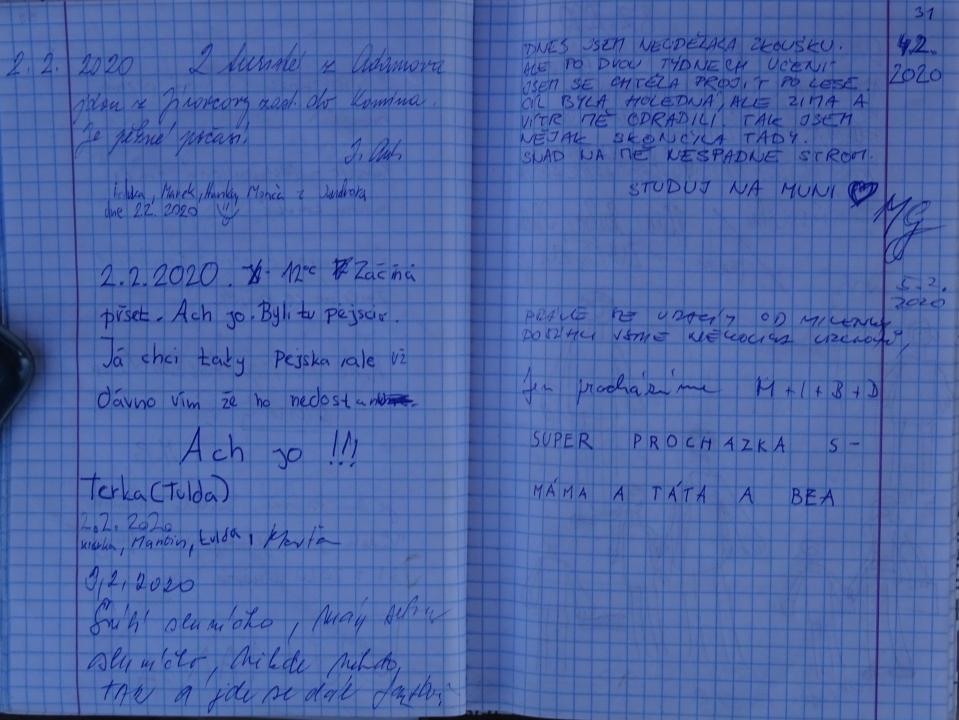 2.2. 2020 2 turisté z Adamova
jdou z Jírovcovy zast. do Komína.
Je pěkné počasí.
Marek, Hanka, Monča z
dne 2.2. 2020
2.2.2020. 12°C Začíná
pršet. Ach jo. Byli tu pejsci.
Já chci taky pejska ale už
dávno vím že ho nedostanu
Ach jo !!!
Terka (Tulda)
2.2. 2020
Martin, Tulda,
9.2.2020
Svítí sluníčko,
sluníčko, nikde nikdo,
tak a jde se dál
31
DNES JSEM NEUDĚLALA ZKOUŠKU. 4.2.
ALE PO DVOU TÝDNECH UČENÍ 2020
JSEM SE CHTĚLA PROJÍT PO LESE.
CÍL BYLA HOLEDNÁ, ALE ZIMA A
VÍTR MĚ ODRADILI, TAK JSEM
NĚJAK SKONČILA TADY.
SNAD NA MĚ NESPADNE STROM.
STUDUJ NA MUNI ♥
MG
5.2.
2020
PRÁVĚ SE VRACÍM OD MILENKY,
Jen procházíme M+I+B+D
SUPER PROCHAZKA S-
MÁMA A TÁTA A BEA